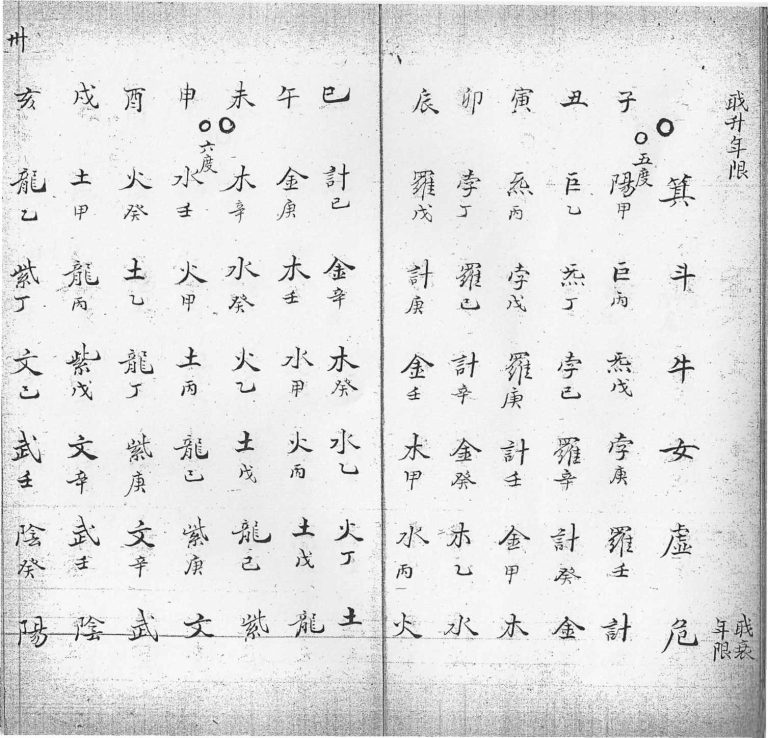 升年限
衰年限
箕 斗 牛 女 虛 危
五度
子 陽甲 巨丙 炁戊 孛庚 羅壬 計
丑 巨乙 炁丁 孛己 羅辛 計癸 金
寅 炁丙 孛戊 羅庚 計壬 金甲 木
卯 孛丁 羅己 計辛 金癸 木乙 水
辰 羅戊 計庚 金壬 木甲 水丙 火
巳 計己 金辛 木癸 水乙 火丁 土
午 金庚 木壬 水甲 火丙 土戊 龍
未 木辛 水癸 火乙 土戊 龍己 紫
六度
申 水壬 火甲 土丙 龍己 紫庚 文
酉 火癸 土乙 龍丁 紫庚 文辛 武
戌 土甲 龍丙 紫戊 文辛 武壬 陰
亥 龍乙 紫丁 文己 武壬 陰癸 陽
卅